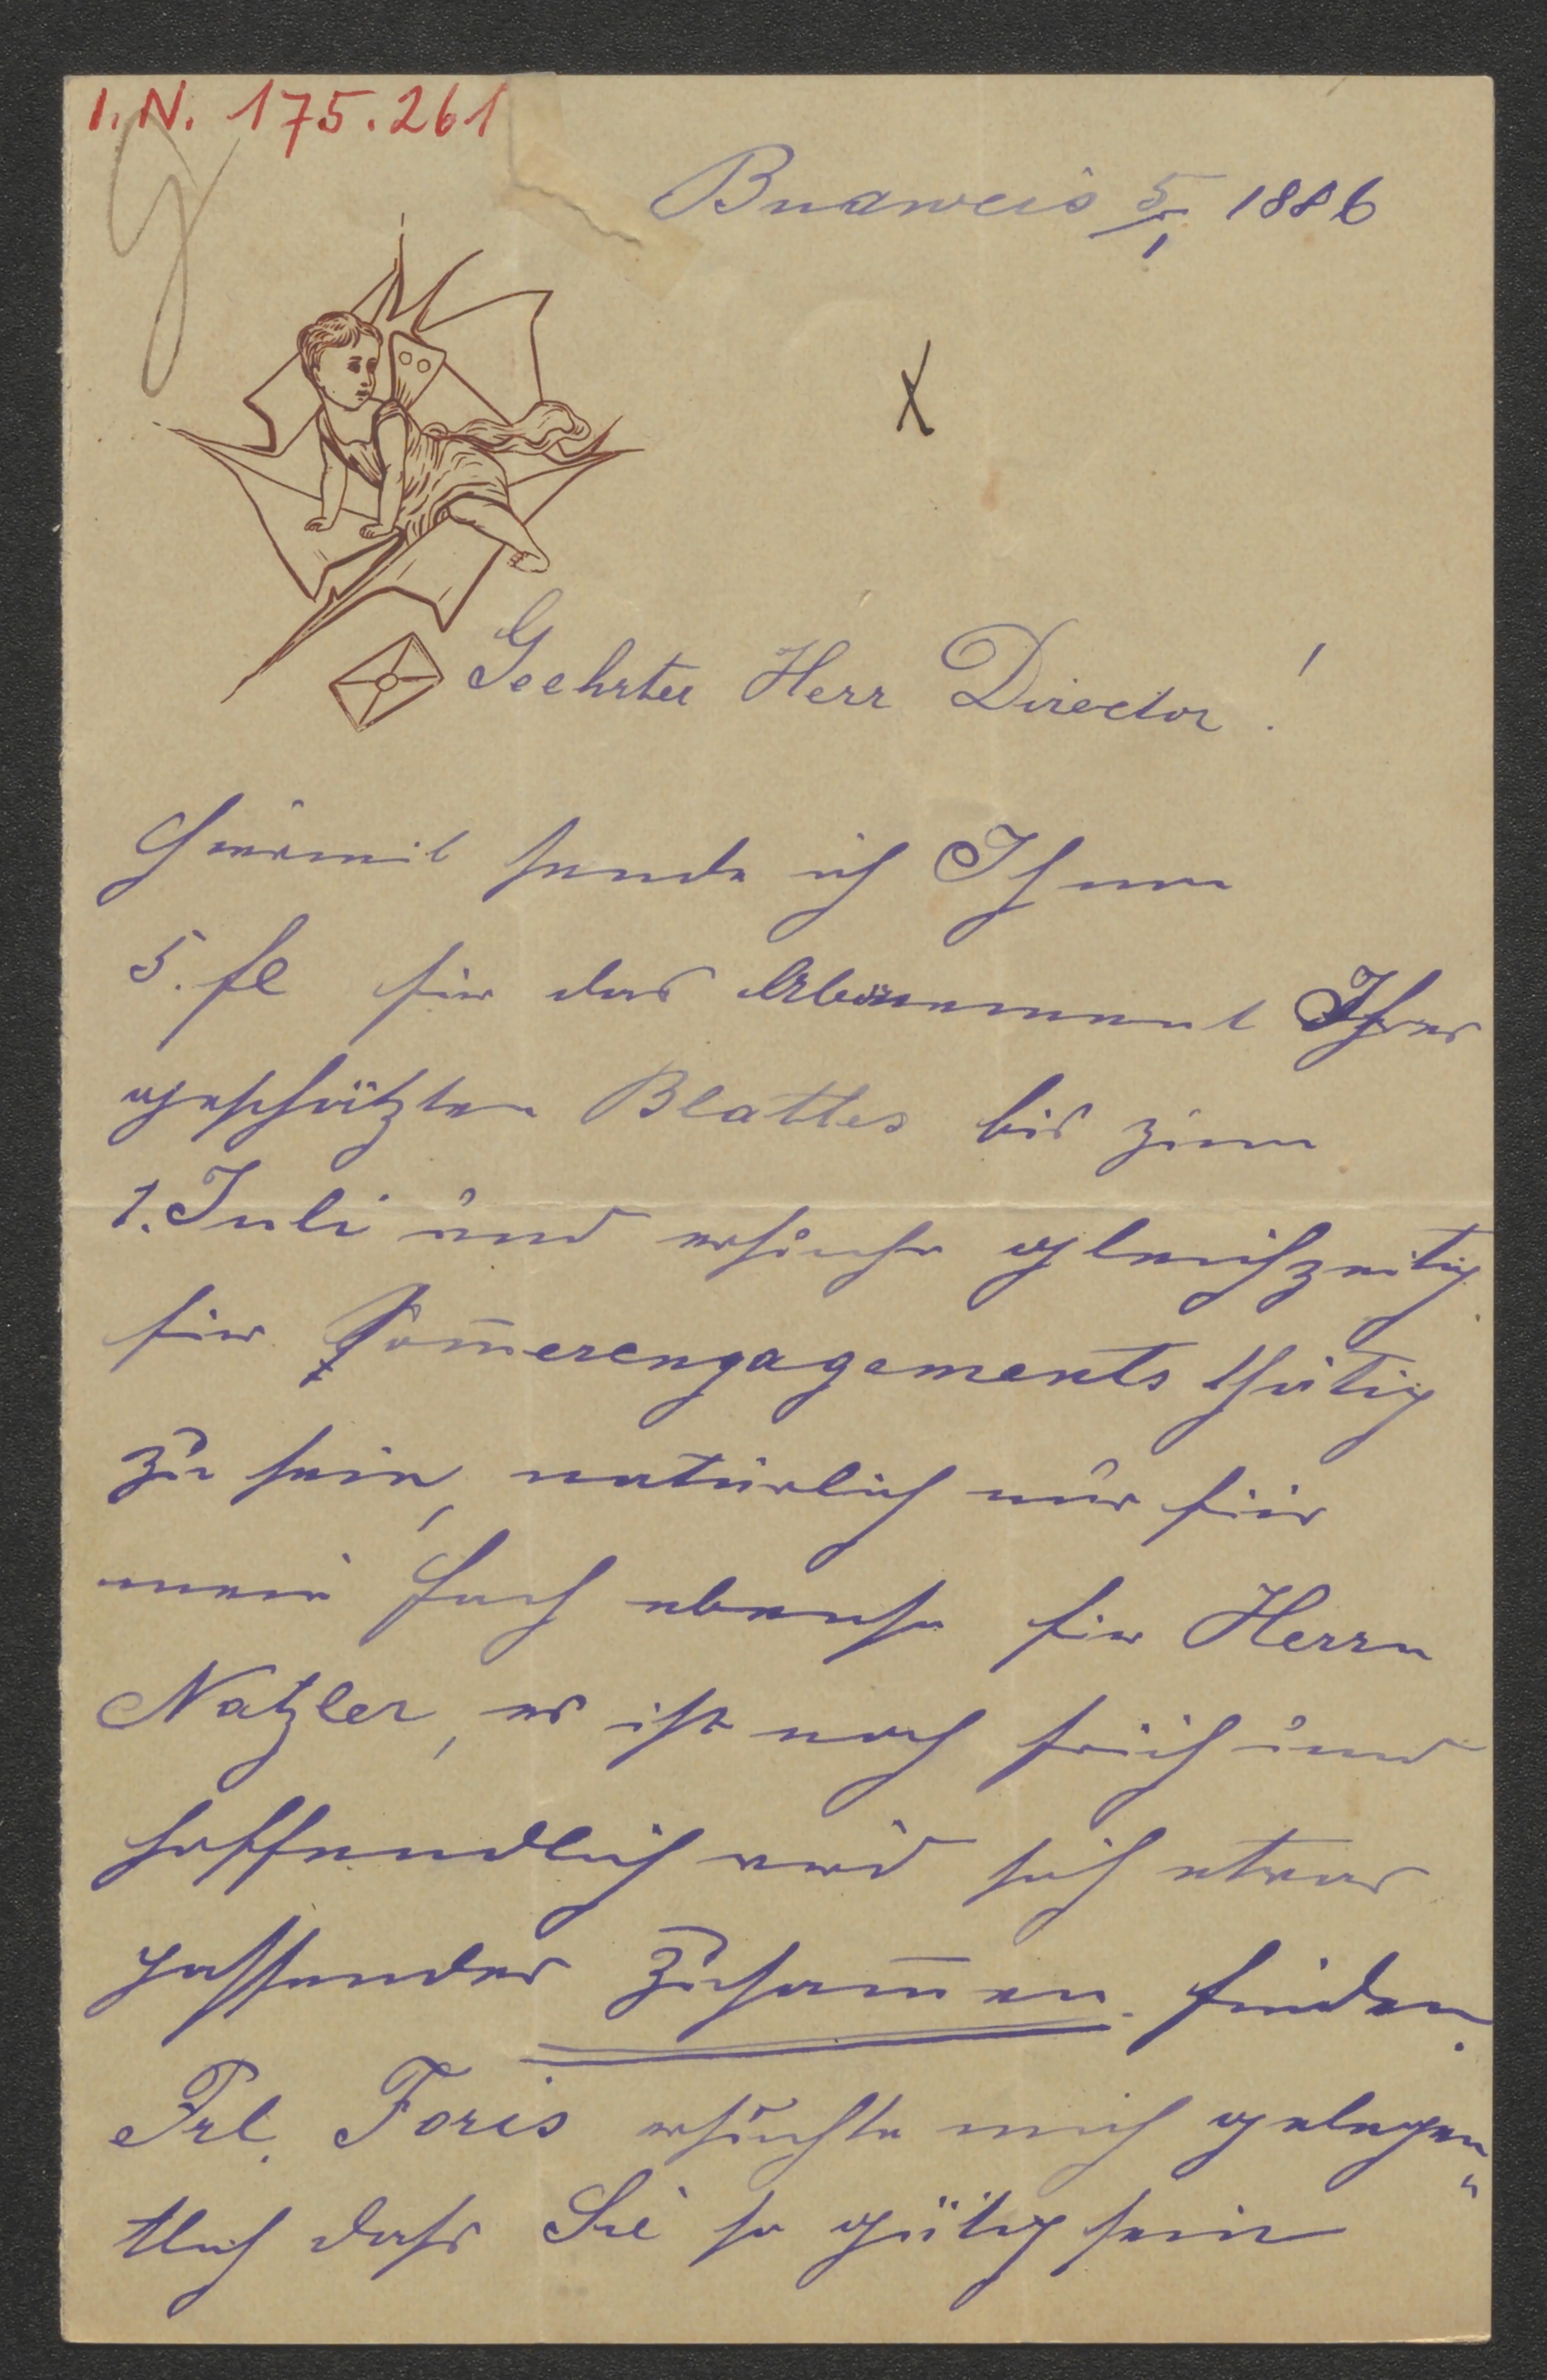 I.N. 175.261
Budweis 5/1 1886
X
Geehrter Herr Director!
Hiermit sende ich Ihnen
5. fl für das Abonnement Ihres
geschätzten Blattes bis zum
1. Juli und ersuche gleichzeitig
für Som̄erengagements thätig
zu sein, natürlich nur für
mein Fach ebenso für Herrn
Natzler, es ist noch früh und
hoffendlich wird sich etwas
passendes zusam̄en finden.
Frl. Foris ersuchte mich gelegen„
tlich dass Sie so gütig sein